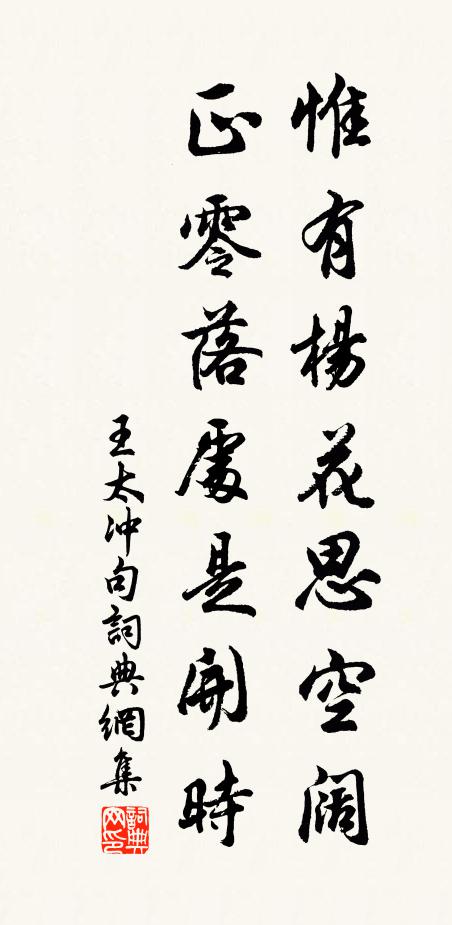 惟有楊花思空阔
正零落處是開時
王太冲句詞典網集
詞典
网印